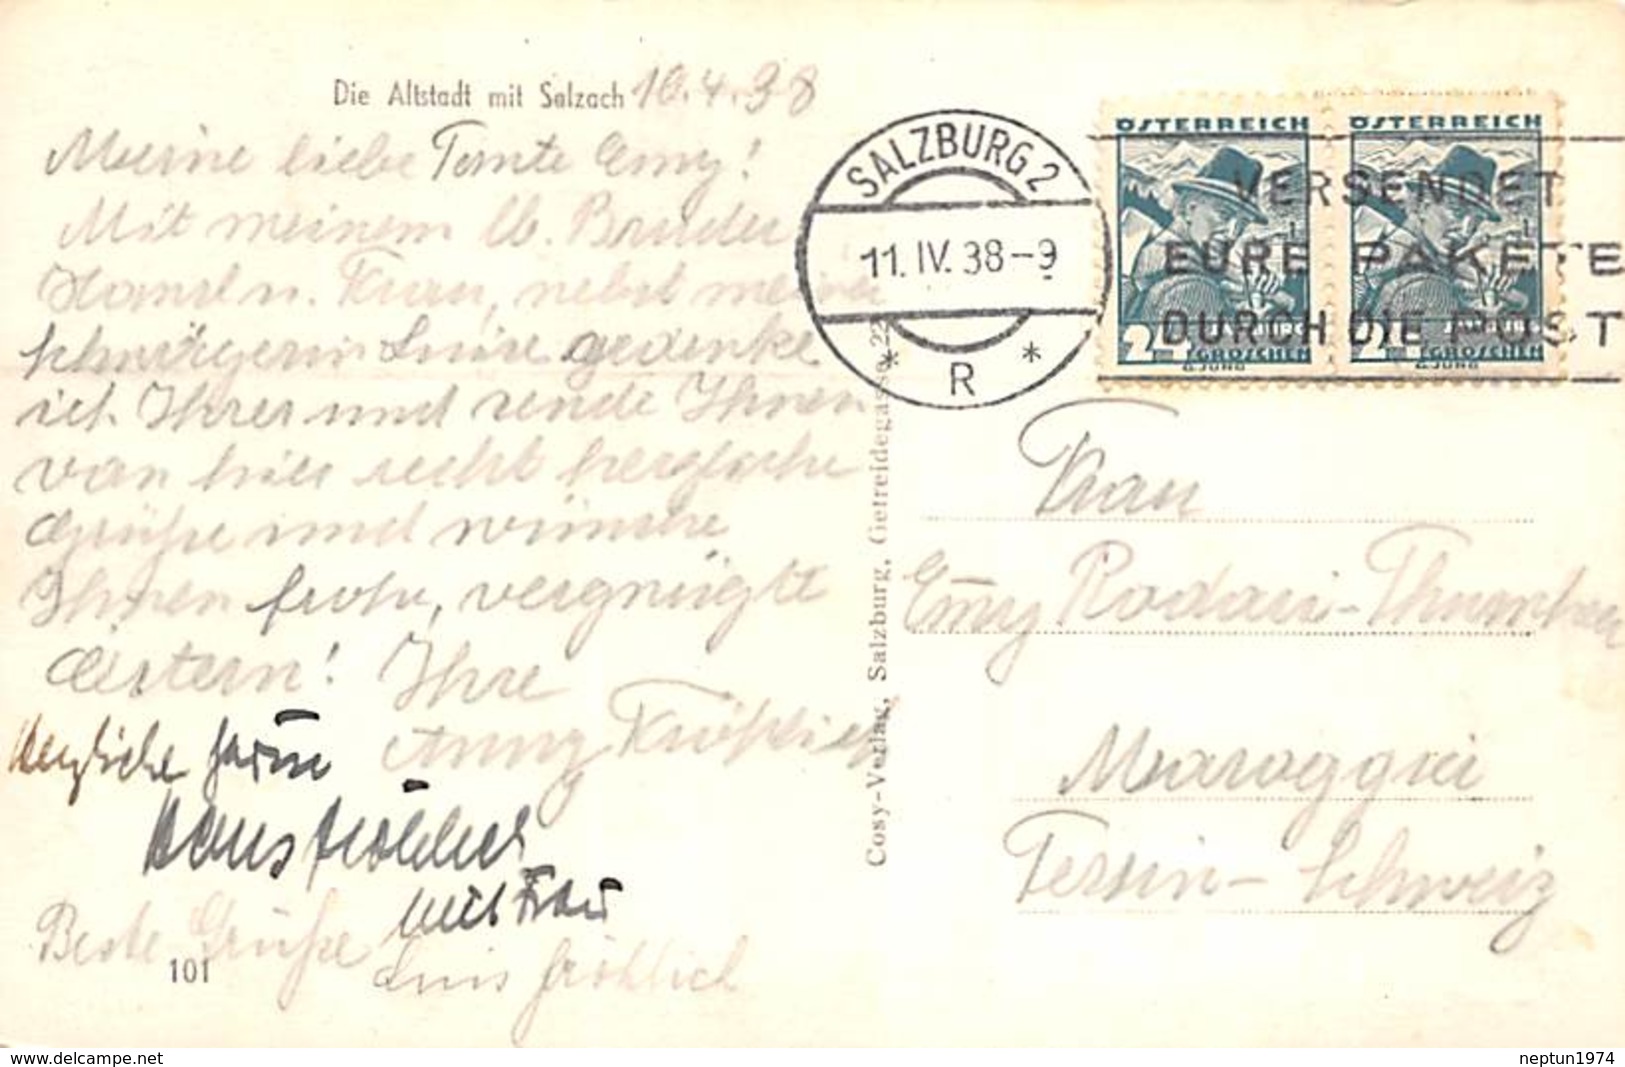 Die Altstadt mit Salzach 10.4.38
Meine liebe Tante Emy!
Mit meinem lb. Bruder
Hansl u. Frau, nebst meiner
Schwägerin Luise gedenke
ich Ihrer und sende Ihnen
von hier recht herzliche
Grüße und wünsche
Ihnen frohe, vergnügte
Ostern! Ihre
Anny Fröhlich
Herzliche
Hans Fröhlich
mit Frau
Beste Grüße
Luis Fröhlich
101
Cosy-Verlag, Salzburg, Getreidegasse 22
SALZBURG 2
11. IV. 38-9
* R *
ÖSTERREICH ÖSTERREICH
VERSENDET
EURE PAKETE
DURCH DIE POST
2 GROSCHEN 2 GROSCHEN
G. JUNG G. JUNG
Frau
Emy Rodari-Thumber
Maroggia
Tessin - Schweiz
www.delcampe.net
neptun1974